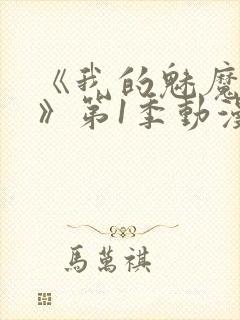 《我的魅魔
》第1季動漫
馬萬祺